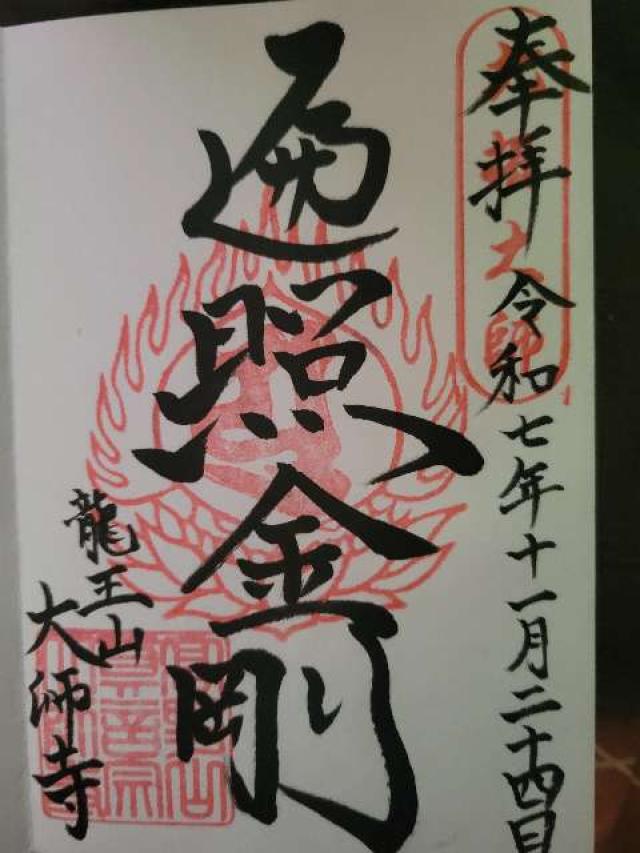 奉拝 令和七年十一月二十四日
遍照金剛
龍王山
大師寺